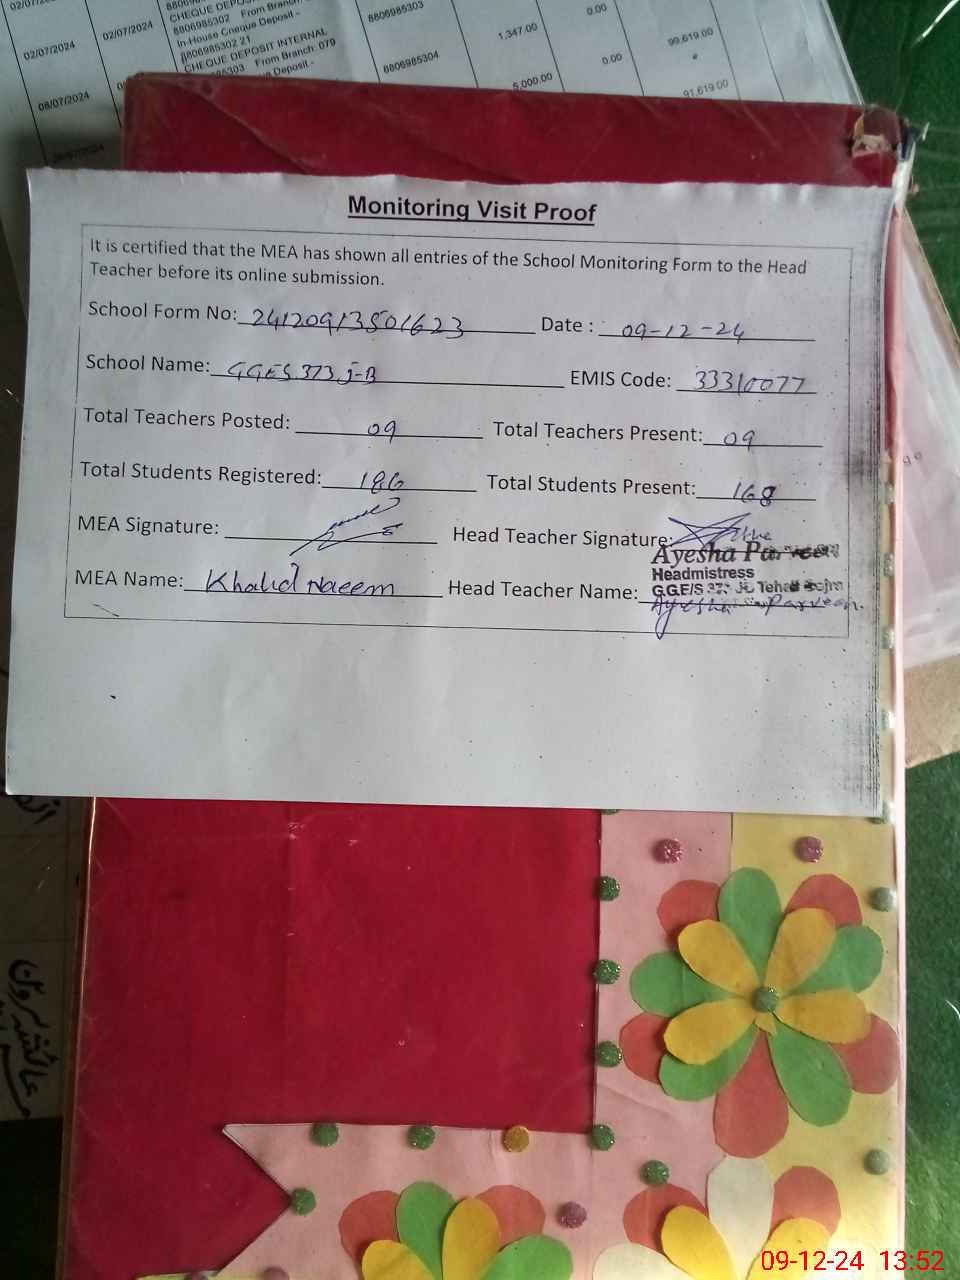 02/07/2024
02/07/2024
CHEQUE DEPOSIT
8806985302 From Branch:
In-House Cheque Deposit -
8806985302 21
CHEQUE DEPOSIT INTERNAL
From Branch: 079
Cheque Deposit -
8806985303
8806985304
1,347.00
0.00
99,619.00
5,000.00
0.00
91,619.00
08/07/2024
Monitoring Visit Proof
It is certified that the MEA has shown all entries of the School Monitoring Form to the Head
Teacher before its online submission.
School Form No: 24120913501623 Date : 09-12-24
School Name: GGES 373 J-B EMIS Code: 33310077
Total Teachers Posted: 09 Total Teachers Present: 09
Total Students Registered: 186 Total Students Present: 168
MEA Signature: Head Teacher Signature:
Ayesha Parveen
Headmistress
G.G.E/S 373 JB Tehsil Gojra
MEA Name: Khalid Naeem Head Teacher Name: Ayesha Parveen.
09-12-24 13:52